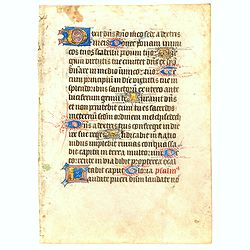 Dixit dns dno meo sede a dextris
meis Donec ponam inimi
cos tuos scabellu pedum tuor
gam virtutis tue emittet dns ex
in medio inimicor tuor Te
cum principiu in die virtutis tue in
splendoribus sanctor ex utero ante
luciferum genui te Iuravit dns
et non penitebit eum tu es sacerdos
ineternu sedm ordinem melchisedech
Dns a dextris tuis confregit in die
ire sue reges Iudicabit in natio
nibus implebit ruinas conquassa
capita in terra multor De
torrente in via bibet propterea exal
tabit caput Gloria psalm
Laudate pueri dnm laudate no